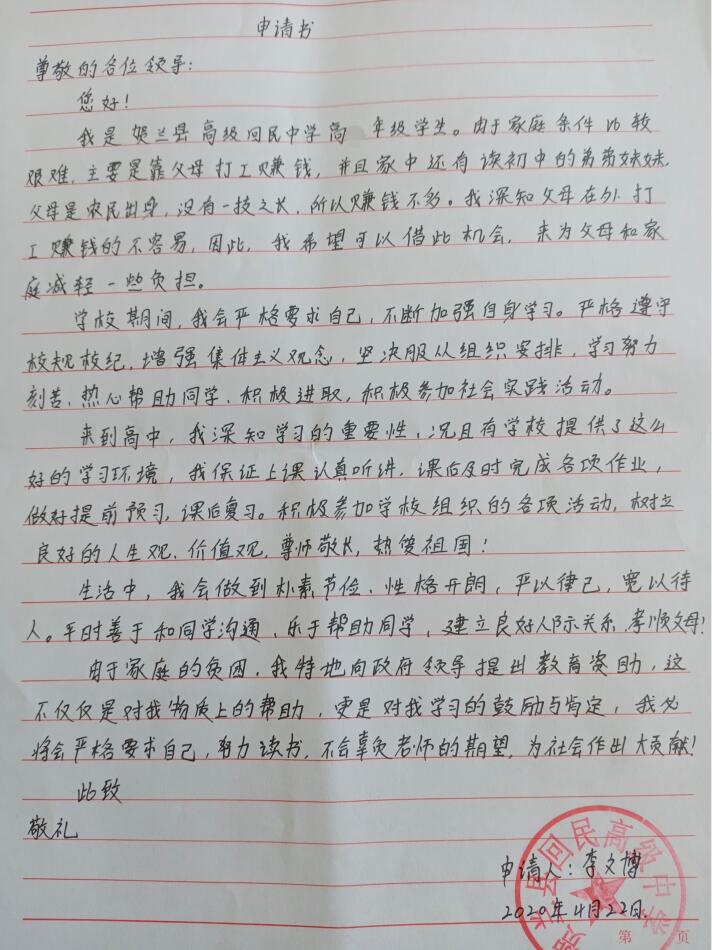 申请书
尊敬的各位领导：
您好！
我是贺兰县高级回民中学高 年级学生。由于家庭条件比较
艰难，主要是靠父母打工赚钱，并且家中还有读初中的弟弟妹妹，
父母是农民出身，没有一技之长，所以赚钱不多。我深知父母在外打
工赚钱的不容易，因此，我希望可以借此机会，来为父母和家
庭减轻一些负担。
学校期间，我会严格要求自己，不断加强自身学习。严格遵守
校规校纪，增强集体主义观念，坚决服从组织安排，学习努力
刻苦、热心帮助同学、积极进取，积极参加社会实践活动。
来到高中，我深知学习的重要性、况且有学校提供了这么
好的学习环境，我保证上课认真听讲，课后及时完成各项作业，
做好提前预习，课后复习。积极参加学校组织的各项活动，树立
良好的人生观、价值观，尊师敬长，热爱祖国！
生活中，我会做到朴素节俭、性格开朗，严以律己，宽以待
人。平时善于和同学沟通、乐于帮助同学，建立良好人际关系，孝顺父母！
由于家庭的贫困，我特地向政府领导提出教育资助，这
不仅仅是对我物质上的帮助，更是对我学习的鼓励与肯定，我必
将会严格要求自己，努力读书，不会辜负老师的期望，为社会作出大贡献！
此致
敬礼
贺兰县回民高级中学
申请人：李文博
2020年4月22日.
第 页